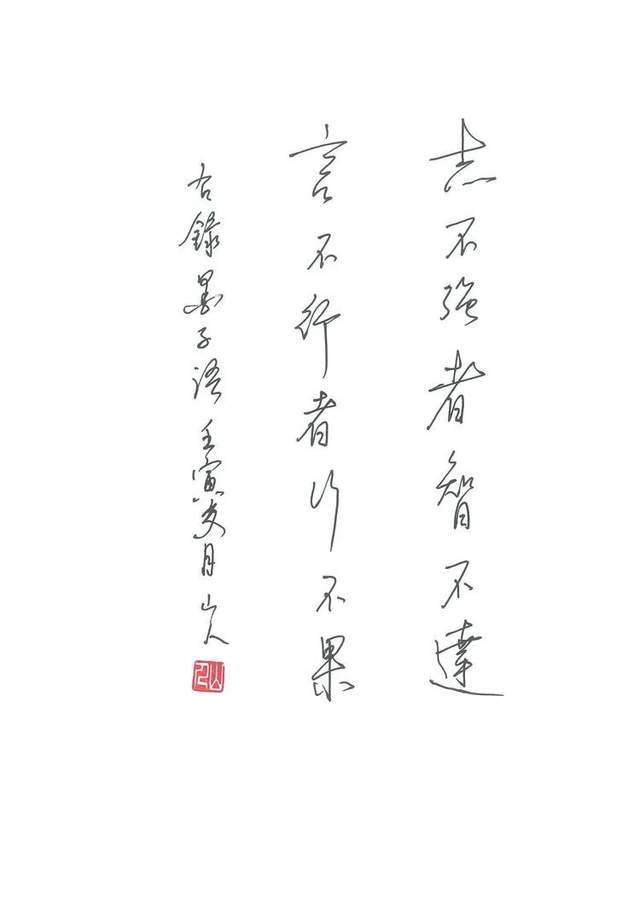 志不強者智不達
言不行者行不果
右錄墨子語壬寅夏月山人